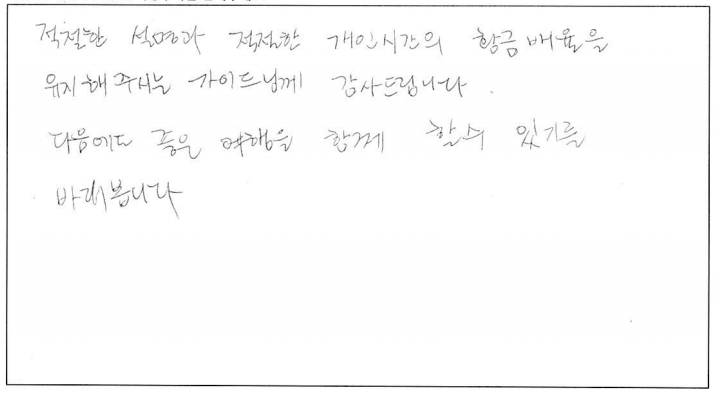 적절한 설명과 적절한 개인시간의 황금배율을
유지해주시는 가이드님께 감사드립니다.
다음에도 좋은 여행을 함께 할수 있기를
바래봅니다